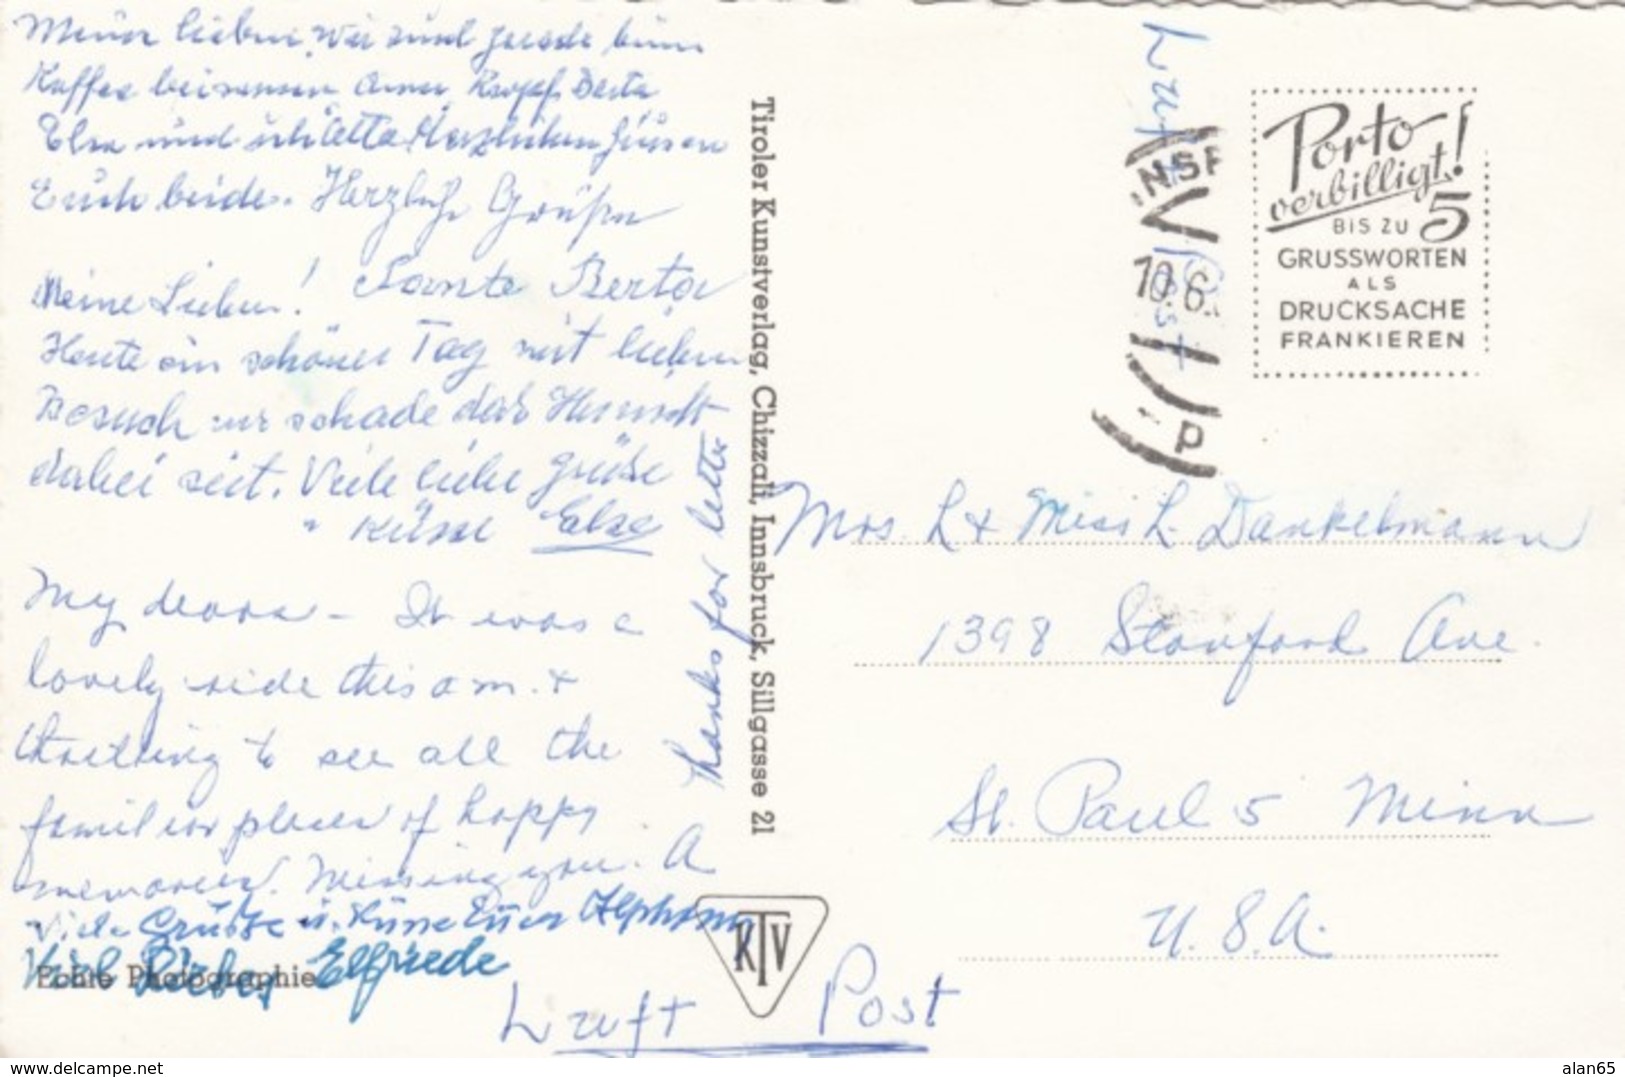 Meine lieben, wir sind gerade beim
Kaffee beisammen Anna Kropf, Berta
Elsa und ich bitte Herzlichen Grüssen
Euch beide. Herzliche Grüßen
Tante Berta
Meine Lieben!
Heute ein schöner Tag mit lieben
Besuch nur schade das Ihr nicht
dabei seit. Viele liebe Grüße
" Küsse Else
My dears - It was a
lovely ride this a m. +
thrilling to see all the
familiar places of happy
memories. Missing you. A
Viele Grüße u. Küsse Euer Alphons
Viel Liebes Elfriede
Thanks for letter
Echte Photographie
Luft Post
Tiroler Kunstverlag, Chizzali, Innsbruck, Sillgasse 21
KTV
Luft Post
NSB
10.6.
P
Porto
verbilligt!
BIS ZU 5
GRUSSWORTEN
ALS
DRUCKSACHE
FRANKIEREN
Mrs. L + Miss L. Dankelmann
1398 Stanford Ave.
St. Paul 5 Minn
U.S.A.
delcampe.net
alan65